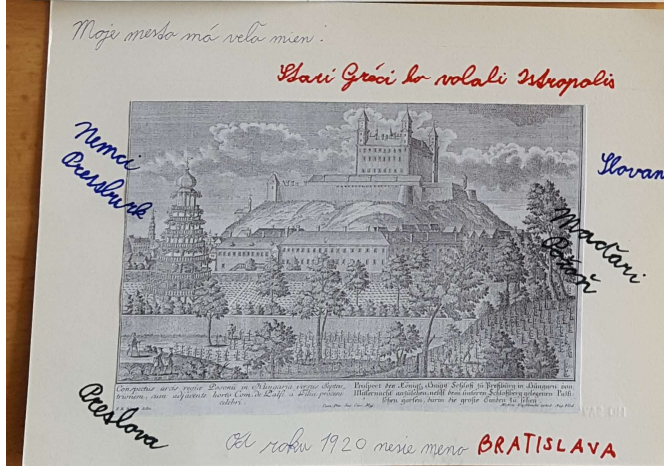 Moje mesto má veľa mien.
Starí Gréci ho volali Istropolis
Nemci
Pressburk
Slovan
Maďari
Požoň
Conspectus arcis regiæ Posonii in Hungaria versus Septem
trionem, cum adjacente horto Com. de Palfi a tiliæ procerii
celebri.
Prospect des Königl. Schloß zu Preßburg in Hungarn von
Mitternacht anzusehen, nebst dem unteren Schloßberg gelegenen Palfi
schen garten, darin die große Linden zu sehen
Preslova
Od roku 1920 nesie meno BRATISLAVA